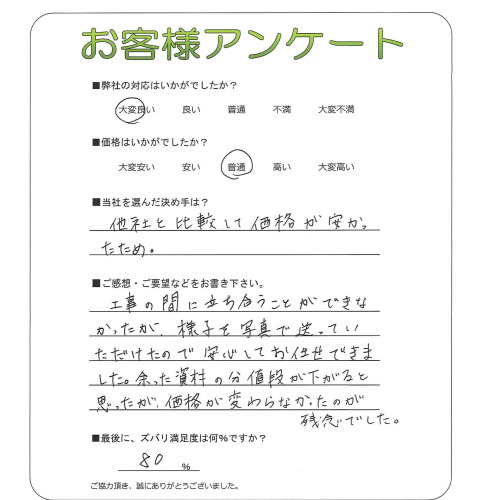 お客様アンケート
■弊社の対応はいかがでしたか？
大変良い 良い 普通 不満 大変不満
■価格はいかがでしたか？
大変安い 安い 普通 高い 大変高い
■当社を選んだ決め手は？
他社と比較して価格が安かっ
たため。
■ご感想・ご要望などをお書き下さい。
工事の間に立ち合うことができな
かったが、様子を写真で送ってい
ただけたので安心してお任せできま
した。余った資料の分値段が下がると
思ったが、価格が変わらなかったのが
残念でした。
■最後に、ズバリ満足度は何%ですか？
80 %
ご協力頂き、誠にありがとうございました。